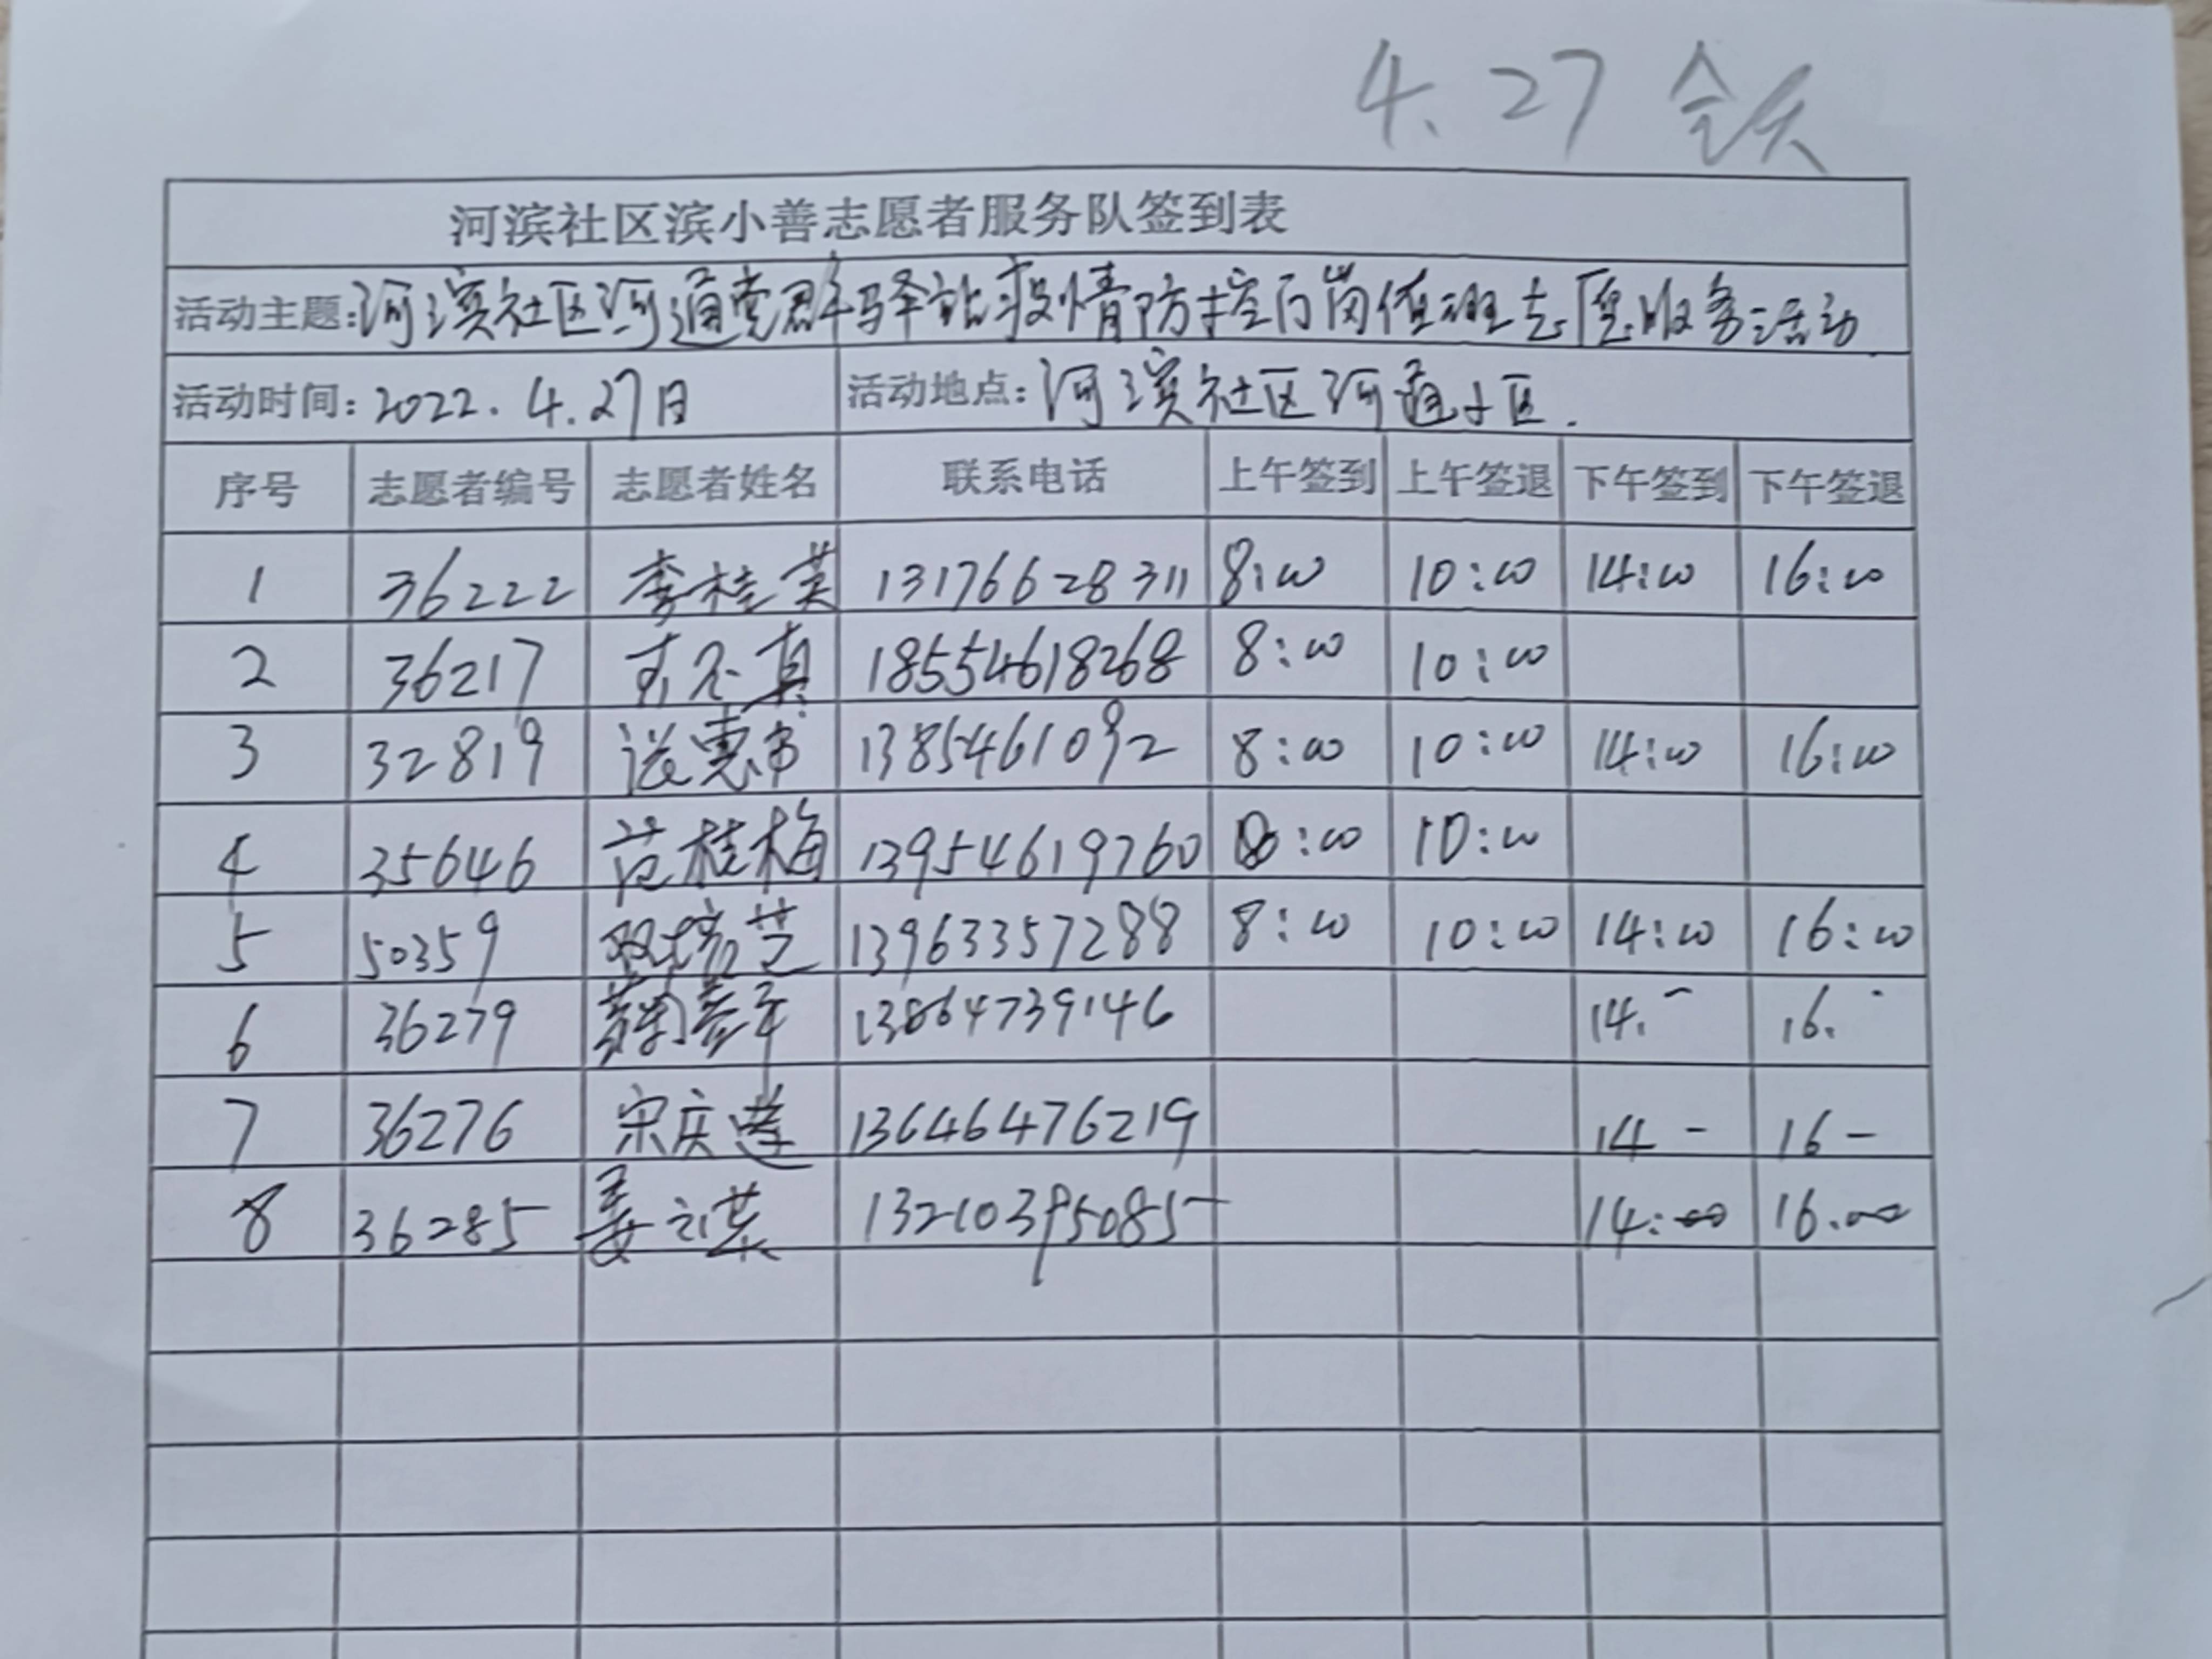 4.27 全天
河滨社区滨小善志愿者服务队签到表
活动主题:河滨社区河通党群驿站疫情防控门岗值班志愿服务活动
活动时间:2022.4.27日 活动地点:河滨社区河通小区.
序号 志愿者编号 志愿者姓名 联系电话 上午签到 上午签退 下午签到 下午签退
1 36222 李桂英 13176628311 8:00 10:00 14:00 16:00
2 36217 18554618268 8:00 10:00
3 32819 1385461092 8:00 10:00 14:00 16:00
4 35646 范桂梅 13954619760 8:00 10:00
5 50359 双培芝 13963357288 8:00 10:00 14:00 16:00
6 36279 13864739146 14. - 16. -
7 36276 宋庆莲 13646476219 14 - 16 -
8 36285 姜之荣 13210395085 14:00 16.00